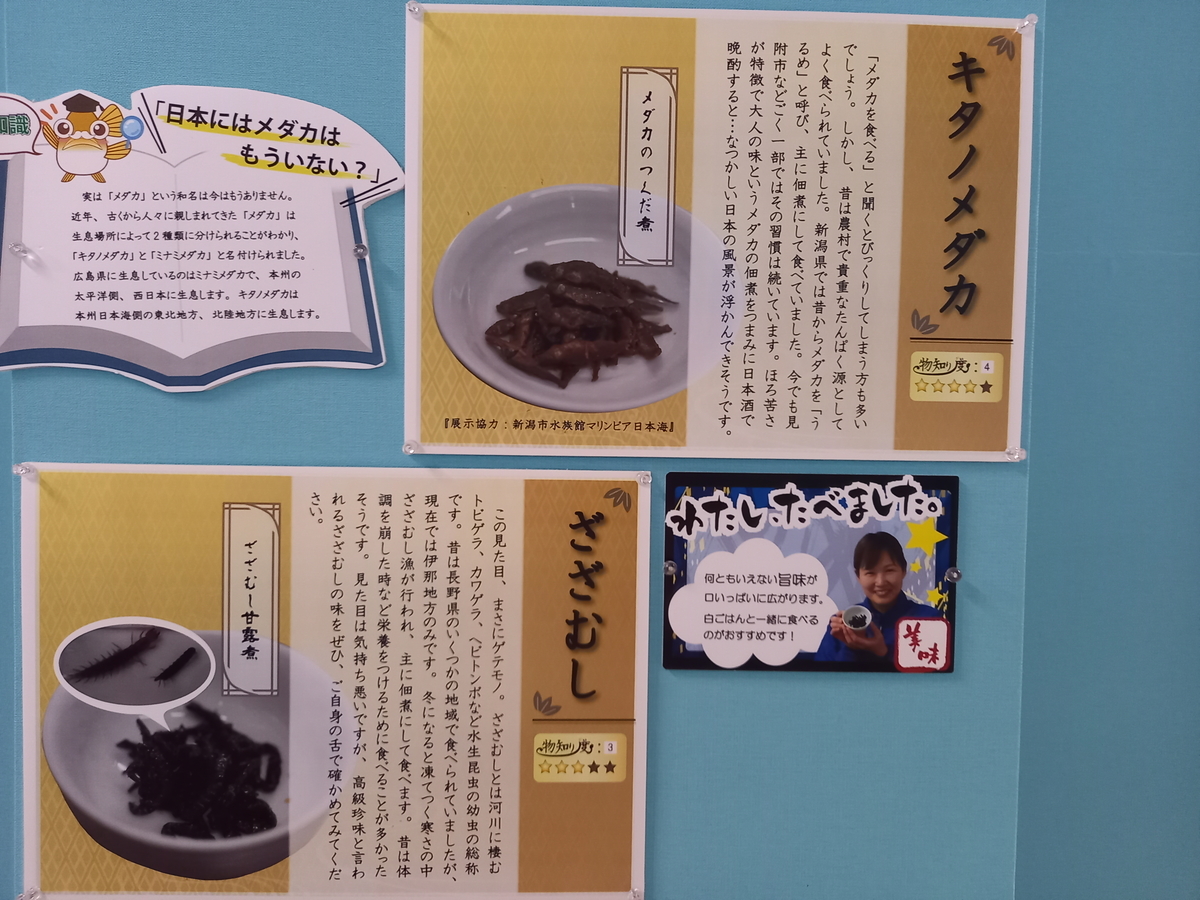 知識
「日本にはメダカは
もういない？」
実は「メダカ」という和名は今はもうありません。
近年、古くから人々に親しまれてきた「メダカ」は
生息場所によって2種類に分けられることがわかり、
「キタノメダカ」と「ミナミメダカ」と名付けられました。
広島県に生息しているのはミナミメダカで、本州の
太平洋側、西日本に生息します。キタノメダカは
本州日本海側の東北地方、北陸地方に生息します。
キタノメダカ
物知り度：4
「メダカを食べる」と聞くとびっくりしてしまう方も多い
でしょう。しかし、昔は農村で貴重なたんぱく源として
よく食べられていました。新潟県では昔からメダカを「う
るめ」と呼び、主に佃煮にして食べていました。今でも見
附市などごく一部ではその習慣は続いています。ほろ苦さ
が特徴で大人の味というメダカの佃煮をつまみに日本酒で
晩酌すると…なつかしい日本の風景が浮かんできそうです。
メダカのつくだ煮
『展示協力：新潟市水族館マリンピア日本海』
ざざむし
物知り度：3
この見た目、まさにゲテモノ。ざざむしとは河川に棲む
トビゲラ、カワゲラ、ヘビトンボなど水生昆虫の幼虫の総称
です。昔は長野県のいくつかの地域で食べられていましたが、
現在では伊那地方のみです。冬になると凍てつく寒さの中
ざざむし漁が行われ、主に佃煮にして食べます。昔は体
調を崩した時など栄養をつけるために食べることが多かった
そうです。見た目は気持ち悪いですが、高級珍味と言わ
れるざざむしの味をぜひ、ご自身の舌で確かめてみてくだ
さい。
ざざむし甘露煮
わたし、たべました。
何ともいえない旨味が
口いっぱいに広がります。
白ごはんと一緒に食べる
のがおすすめです！
美味